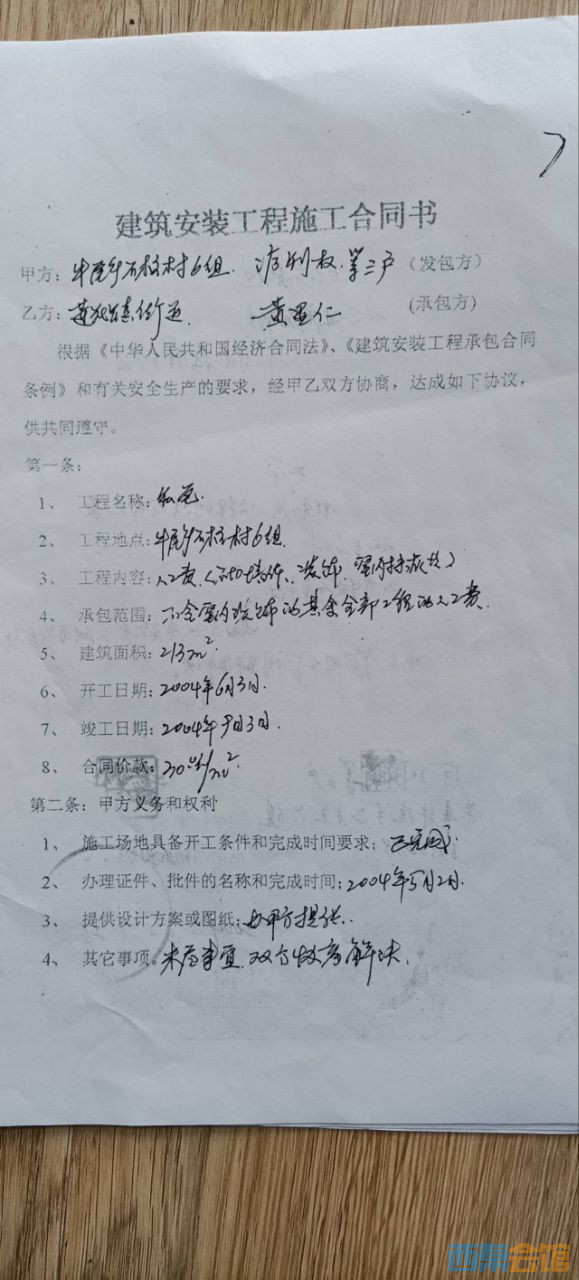 建筑安装工程施工合同书
甲方：牛尾乡石柱村6组 权 等三户（发包方）
乙方：街道 黄 仁 （承包方）
根据《中华人民共和国经济合同法》、《建筑安装工程承包合同
条例》和有关安全生产的要求，经甲乙双方协商，达成如下协议，
供共同遵守。
第一条：
1、 工程名称：私宅
2、 工程地点：牛尾乡石柱村6组
3、 工程内容：人工费（
4、 承包范围：不含室内装饰的其余全部工程的人工费
5、 建筑面积：213m²
6、 开工日期：2004年6月3日.
7、 竣工日期：2004年9月3日.
8、 合同价款： 元/m²
第二条：甲方义务和权利
1、 施工场地具备开工条件和完成时间要求：已完成
2、 办理证件、批件的名称和完成时间：2004年5月2日.
3、 提供设计方案或图纸：由甲方提供.
4、 其它事项。未尽事宜，双方协商解决.
西祠会馆